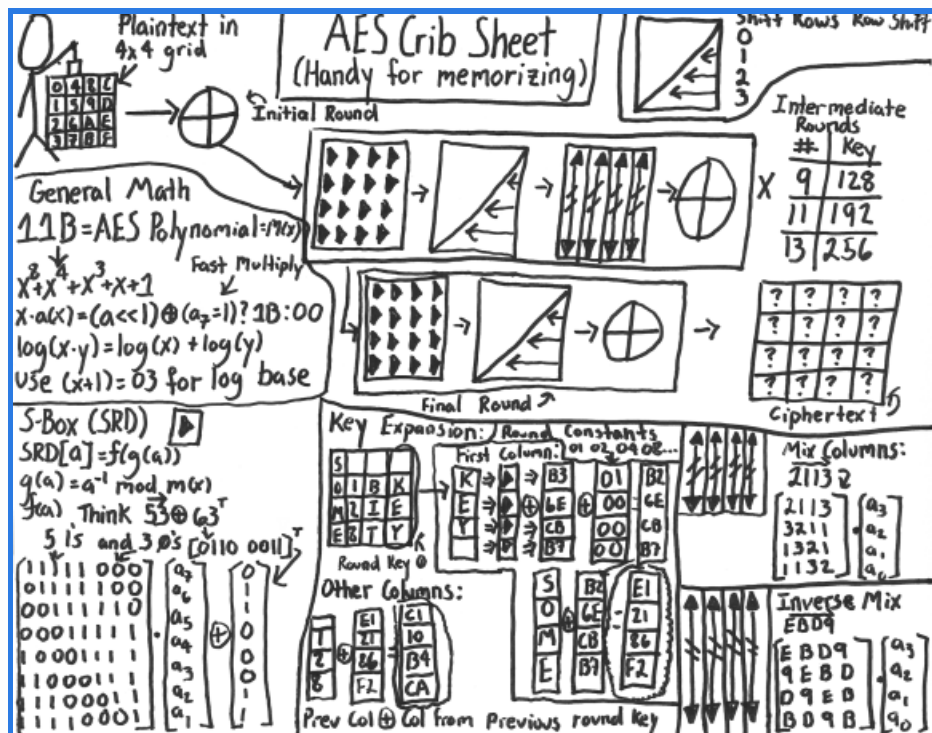 Plaintext in
4x4 grid
0 4 8 C
1 5 9 D
2 6 A E
3 7 B F
AES Crib Sheet
(Handy for memorizing)
Shift Rows Row Shift
0
1
2
3
Initial Round
Intermediate
Rounds
# Key
9 128
11 192
13 256
X
General Math
11B=AES Polynomial=m(x)
x⁸+x⁴+x³+x+1
Fast Multiply
x·a(x)=(a<<1)⊕(a₇=1)?1B:00
log(x·y)=log(x)+log(y)
Use (x+1)=03 for log base
Final Round
? ? ? ?
? ? ? ?
? ? ? ?
? ? ? ?
Ciphertext
S-Box (SRD)
SRD[a]=f(g(a))
g(a)=a⁻¹ mod m(x)
f(a) Think 53⊕63ᵀ
5 1's and 3 0's [0110 0011]ᵀ
1 1 1 1 1 0 0 0
0 1 1 1 1 1 0 0
0 0 1 1 1 1 1 0
0 0 0 1 1 1 1 1
1 0 0 0 1 1 1 1
1 1 0 0 0 1 1 1
1 1 1 0 0 0 1 1
1 1 1 1 0 0 0 1
·
a₇
a₆
a₅
a₄
a₃
a₂
a₁
⊕
0
1
1
0
0
0
1
1
Key Expansion: Round Constants
01 02 04 08...
First Column:
S
O 1 B K
M 2 I E
E 8 T Y
Round Key 0
K
E
Y
B3
6E
CB
B7
⊕
01
00
00
00
=
B2
6E
CB
B7
S
O
M
E
⊕
B2
6E
CB
B7
=
E1
21
86
F2
Other Columns:
1
2
8
⊕
E1
21
86
F2
=
C1
10
B4
CA
Prev Col ⊕ Col from Previous round key
Mix Columns:
2113
2113
3211
1321
1132
·
a₃
a₂
a₁
a₀
Inverse Mix
EBD9
E B D 9
9 E B D
D 9 E B
B D 9 B
·
a₃
a₂
a₁
a₀